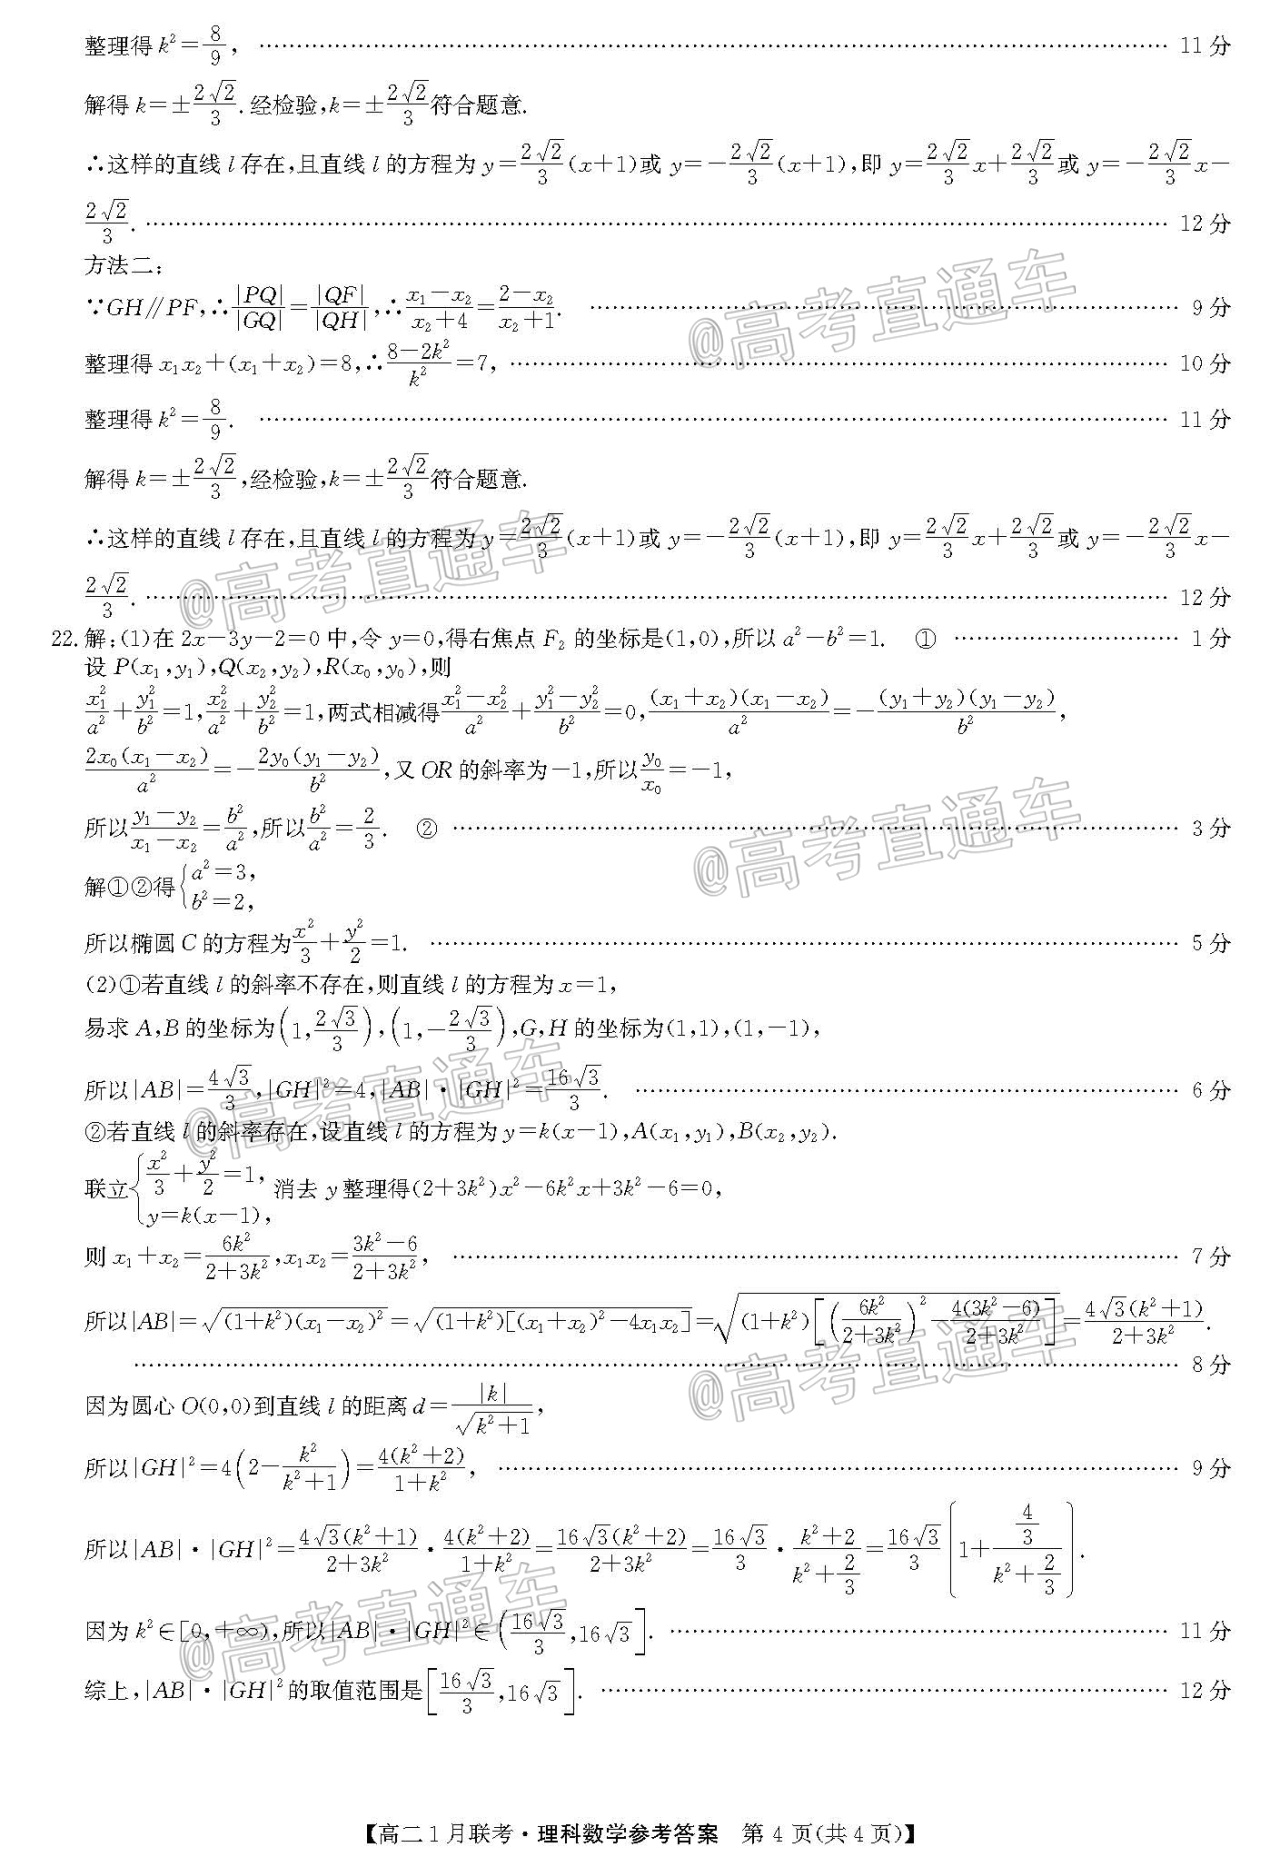 整理得 k²=8/9, …… 11 分
解得 k=±2√2/3. 经检验,k=±2√2/3 符合题意.
∴这样的直线 l 存在,且直线 l 的方程为 y=2√2/3(x+1)或 y=-2√2/3(x+1),即 y=2√2/3 x+2√2/3 或 y=-2√2/3 x-
2√2/3. …… 12 分
方法二:
∵GH∥PF,∴|PQ|/|GQ|=|QF|/|QH|,∴(x₁-x₂)/(x₂+4)=(2-x₂)/(x₂+1). …… 9 分
整理得 x₁x₂+(x₁+x₂)=8,∴(8-2k²)/k²=7, …… 10 分
整理得 k²=8/9. …… 11 分
解得 k=±2√2/3,经检验,k=±2√2/3 符合题意.
∴这样的直线 l 存在,且直线 l 的方程为 y=2√2/3(x+1)或 y=-2√2/3(x+1),即 y=2√2/3 x+2√2/3 或 y=-2√2/3 x-
2√2/3. …… 12 分
22. 解:(1)在 2x-3y-2=0 中,令 y=0,得右焦点 F₂ 的坐标是(1,0),所以 a²-b²=1. ① …… 1 分
设 P(x₁,y₁),Q(x₂,y₂),R(x₀,y₀),则
x₁²/a²+y₁²/b²=1,x₂²/a²+y₂²/b²=1,两式相减得(x₁²-x₂²)/a²+(y₁²-y₂²)/b²=0,(x₁+x₂)(x₁-x₂)/a²=-(y₁+y₂)(y₁-y₂)/b²,
2x₀(x₁-x₂)/a²=-2y₀(y₁-y₂)/b²,又 OR 的斜率为-1,所以 y₀/x₀=-1,
所以(y₁-y₂)/(x₁-x₂)=b²/a²,所以 b²/a²=2/3. ② …… 3 分
解①②得{a²=3, b²=2,
所以椭圆 C 的方程为 x²/3+y²/2=1. …… 5 分
(2)①若直线 l 的斜率不存在,则直线 l 的方程为 x=1,
易求 A,B 的坐标为(1,2√3/3),(1,-2√3/3),G,H 的坐标为(1,1),(1,-1),
所以|AB|=4√3/3,|GH|²=4,|AB|·|GH|²=16√3/3. …… 6 分
②若直线 l 的斜率存在,设直线 l 的方程为 y=k(x-1),A(x₁,y₁),B(x₂,y₂).
联立{x²/3+y²/2=1, y=k(x-1), 消去 y 整理得(2+3k²)x²-6k²x+3k²-6=0,
则 x₁+x₂=6k²/(2+3k²),x₁x₂=(3k²-6)/(2+3k²), …… 7 分
所以|AB|=√((1+k²)(x₁-x₂)²)=√((1+k²)[(x₁+x₂)²-4x₁x₂])=√((1+k²)[(6k²/(2+3k²))²-4(3k²-6)/(2+3k²)])=4√3(k²+1)/(2+3k²).
…… 8 分
因为圆心 O(0,0)到直线 l 的距离 d=|k|/√(k²+1),
所以|GH|²=4(2-k²/(k²+1))=4(k²+2)/(1+k²), …… 9 分
所以|AB|·|GH|²=4√3(k²+1)/(2+3k²)·4(k²+2)/(1+k²)=16√3(k²+2)/(2+3k²)=16√3/3·(k²+2)/(k²+2/3)=16√3/3(1+(4/3)/(k²+2/3)).
因为 k²∈[0,+∞),所以|AB|·|GH|²∈(16√3/3,16√3]. …… 11 分
综上,|AB|·|GH|²的取值范围是[16√3/3,16√3]. …… 12 分
【高二 1 月联考·理科数学参考答案 第 4 页(共 4 页)】
@高考直通车
@高考直通车
@高考直通车
@高考直通车
@高考直通车
@高考直通车